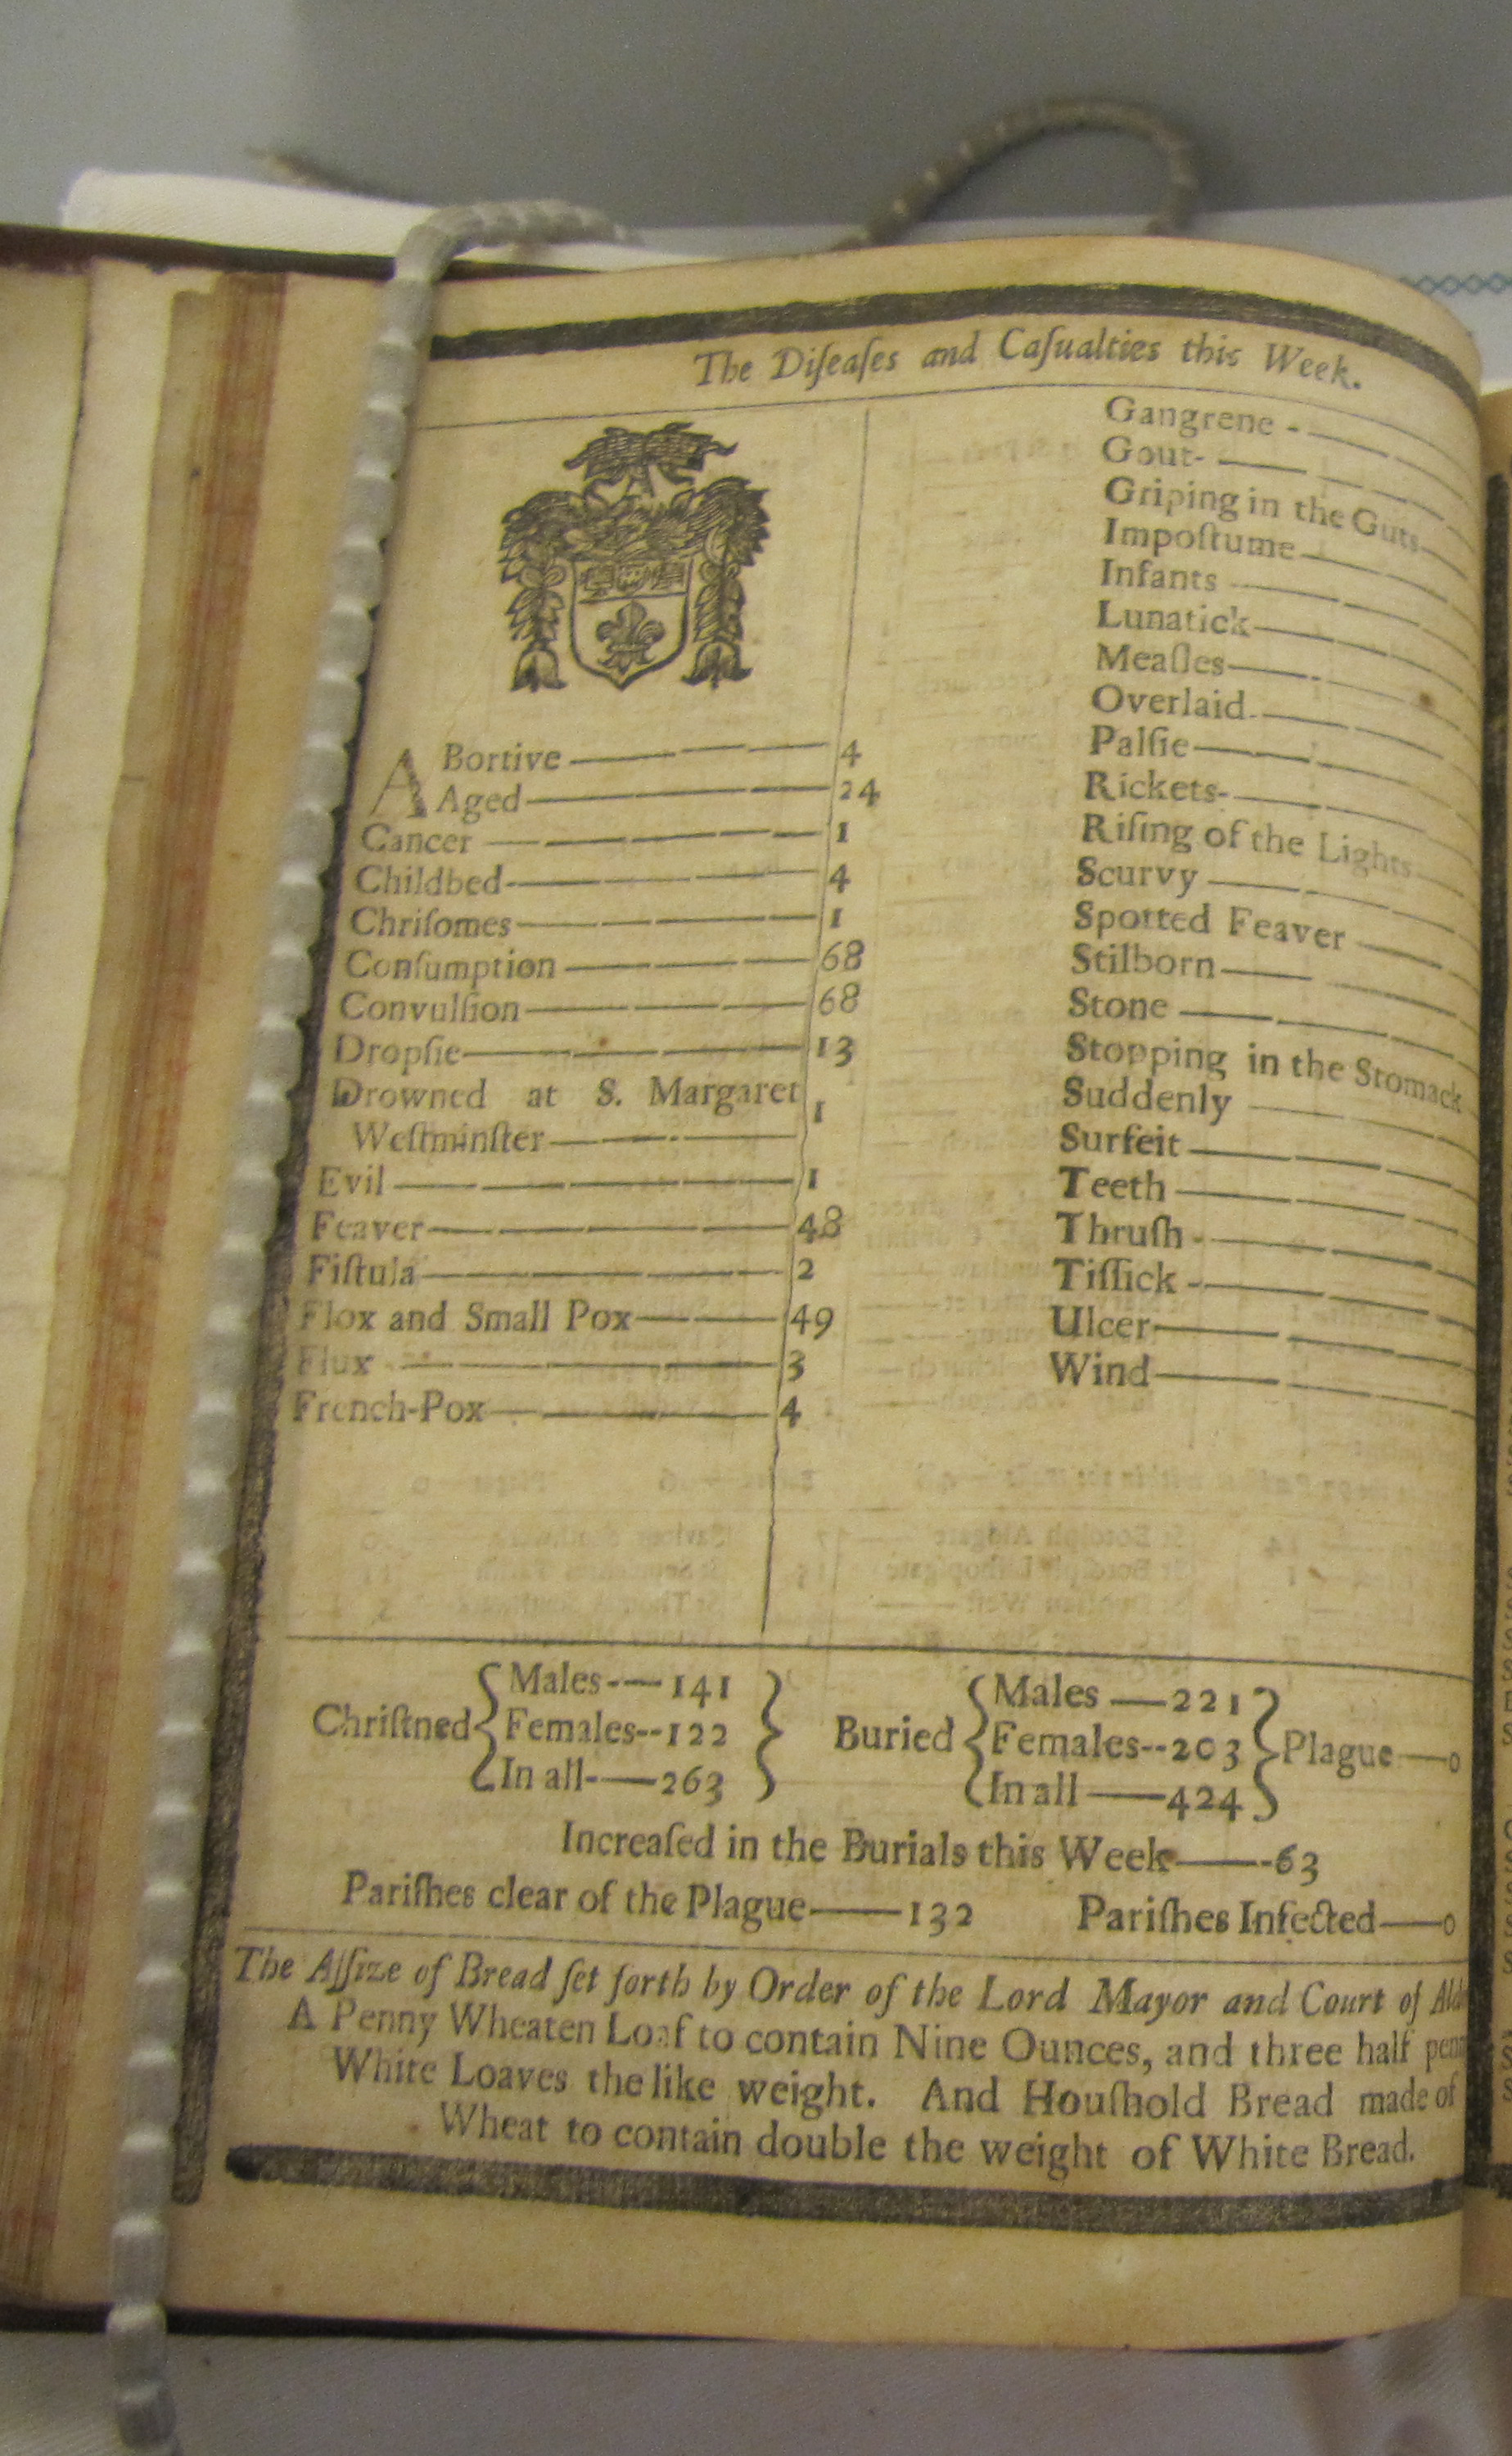 The Diſeaſes and Caſualties this Week.
ABortive 4
Aged 24
Cancer 1
Childbed 4
Chriſomes 1
Conſumption 68
Convulſion 68
Dropſie 13
Drowned at S. Margaret
Weſtminſter 1
Evil 1
Feaver 48
Fiſtula 2
Flox and Small Pox 49
Flux 3
French-Pox 4
Gangrene
Gout
Griping in the Guts
Impoſtume
Infants
Lunatick
Meaſles
Overlaid
Palſie
Rickets
Riſing of the Lights
Scurvy
Spotted Feaver
Stilborn
Stone
Stopping in the Stomack
Suddenly
Surfeit
Teeth
Thruſh
Tiſſick
Ulcer
Wind
Chriſtned
Males 141
Females 122
In all 263
Buried
Males 221
Females 203
In all 424
Plague 0
Increaſed in the Burials this Week 63
Pariſhes clear of the Plague 132 Pariſhes Infected 0
The Aſſize of Bread ſet forth by Order of the Lord Mayor and Court of
A Penny Wheaten Loaf to contain Nine Ounces, and three half
White Loaves the like weight. And Houſhold Bread made of
Wheat to contain double the weight of White Bread.